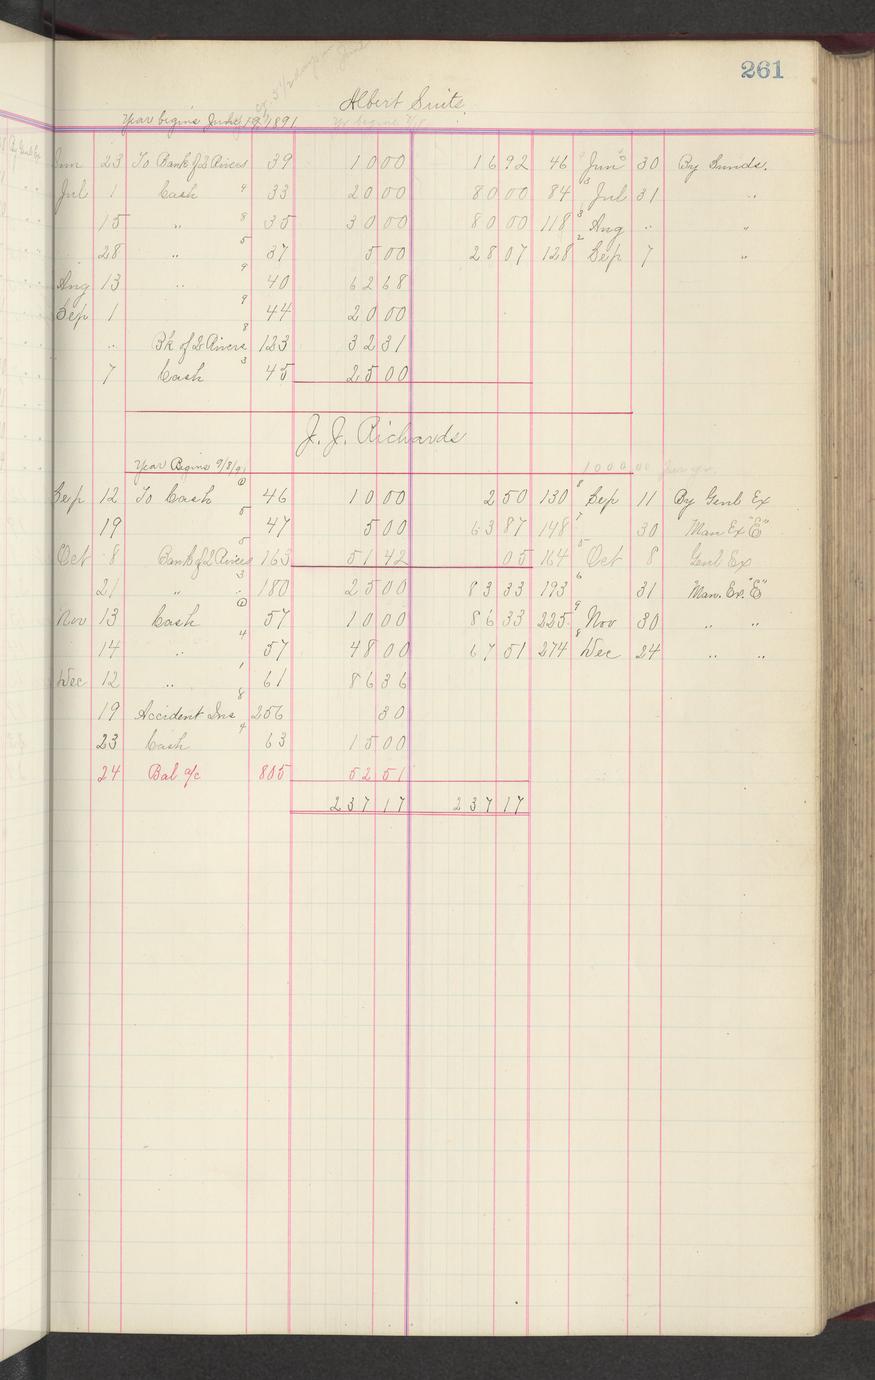 261
Albert Suits
Year begins June 19, 1891
Jun 23 To Bank of 2 Rivers 39 10 00 16 92 46 Jun 30 By Sunds.
Jul 1 Cash 4 33 20 00 80 00 84 3 Jul 31 "
15 " 8 35 30 00 80 00 118 3 Aug " "
28 " 5 37 5 00 28 07 128 2 Sep 7 "
Aug 13 " 9 40 62 68
Sep 1 9 44 20 00
" Bk of 2 Rivers 8 123 32 31
7 Cash 3 45 25 00
J. J. Richards
Year Begins 9/8/91 1000 00 per yr.
Sep 12 To Cash 46 10 00 2 50 130 8 Sep 11 By Genl Ex
19 5 47 5 00 63 87 148 7 30 Man Ex "E"
Oct 8 Bank of 2 Rivers 5 163 51 42 05 164 5 Oct 8 Genl Ex
21 " " 3 180 25 00 83 33 193 6 31 Man. Ex. "E"
Nov 13 Cash 57 10 00 86 33 225 9 Nov 30 " "
14 " 4 57 48 00 67 51 274 8 Dec 24 " "
Dec 12 " 1 61 86 36
19 Accident Ins 8 256 30
23 Cash 4 63 15 00
24 Bal a/c 805 52 51
237 17 237 17